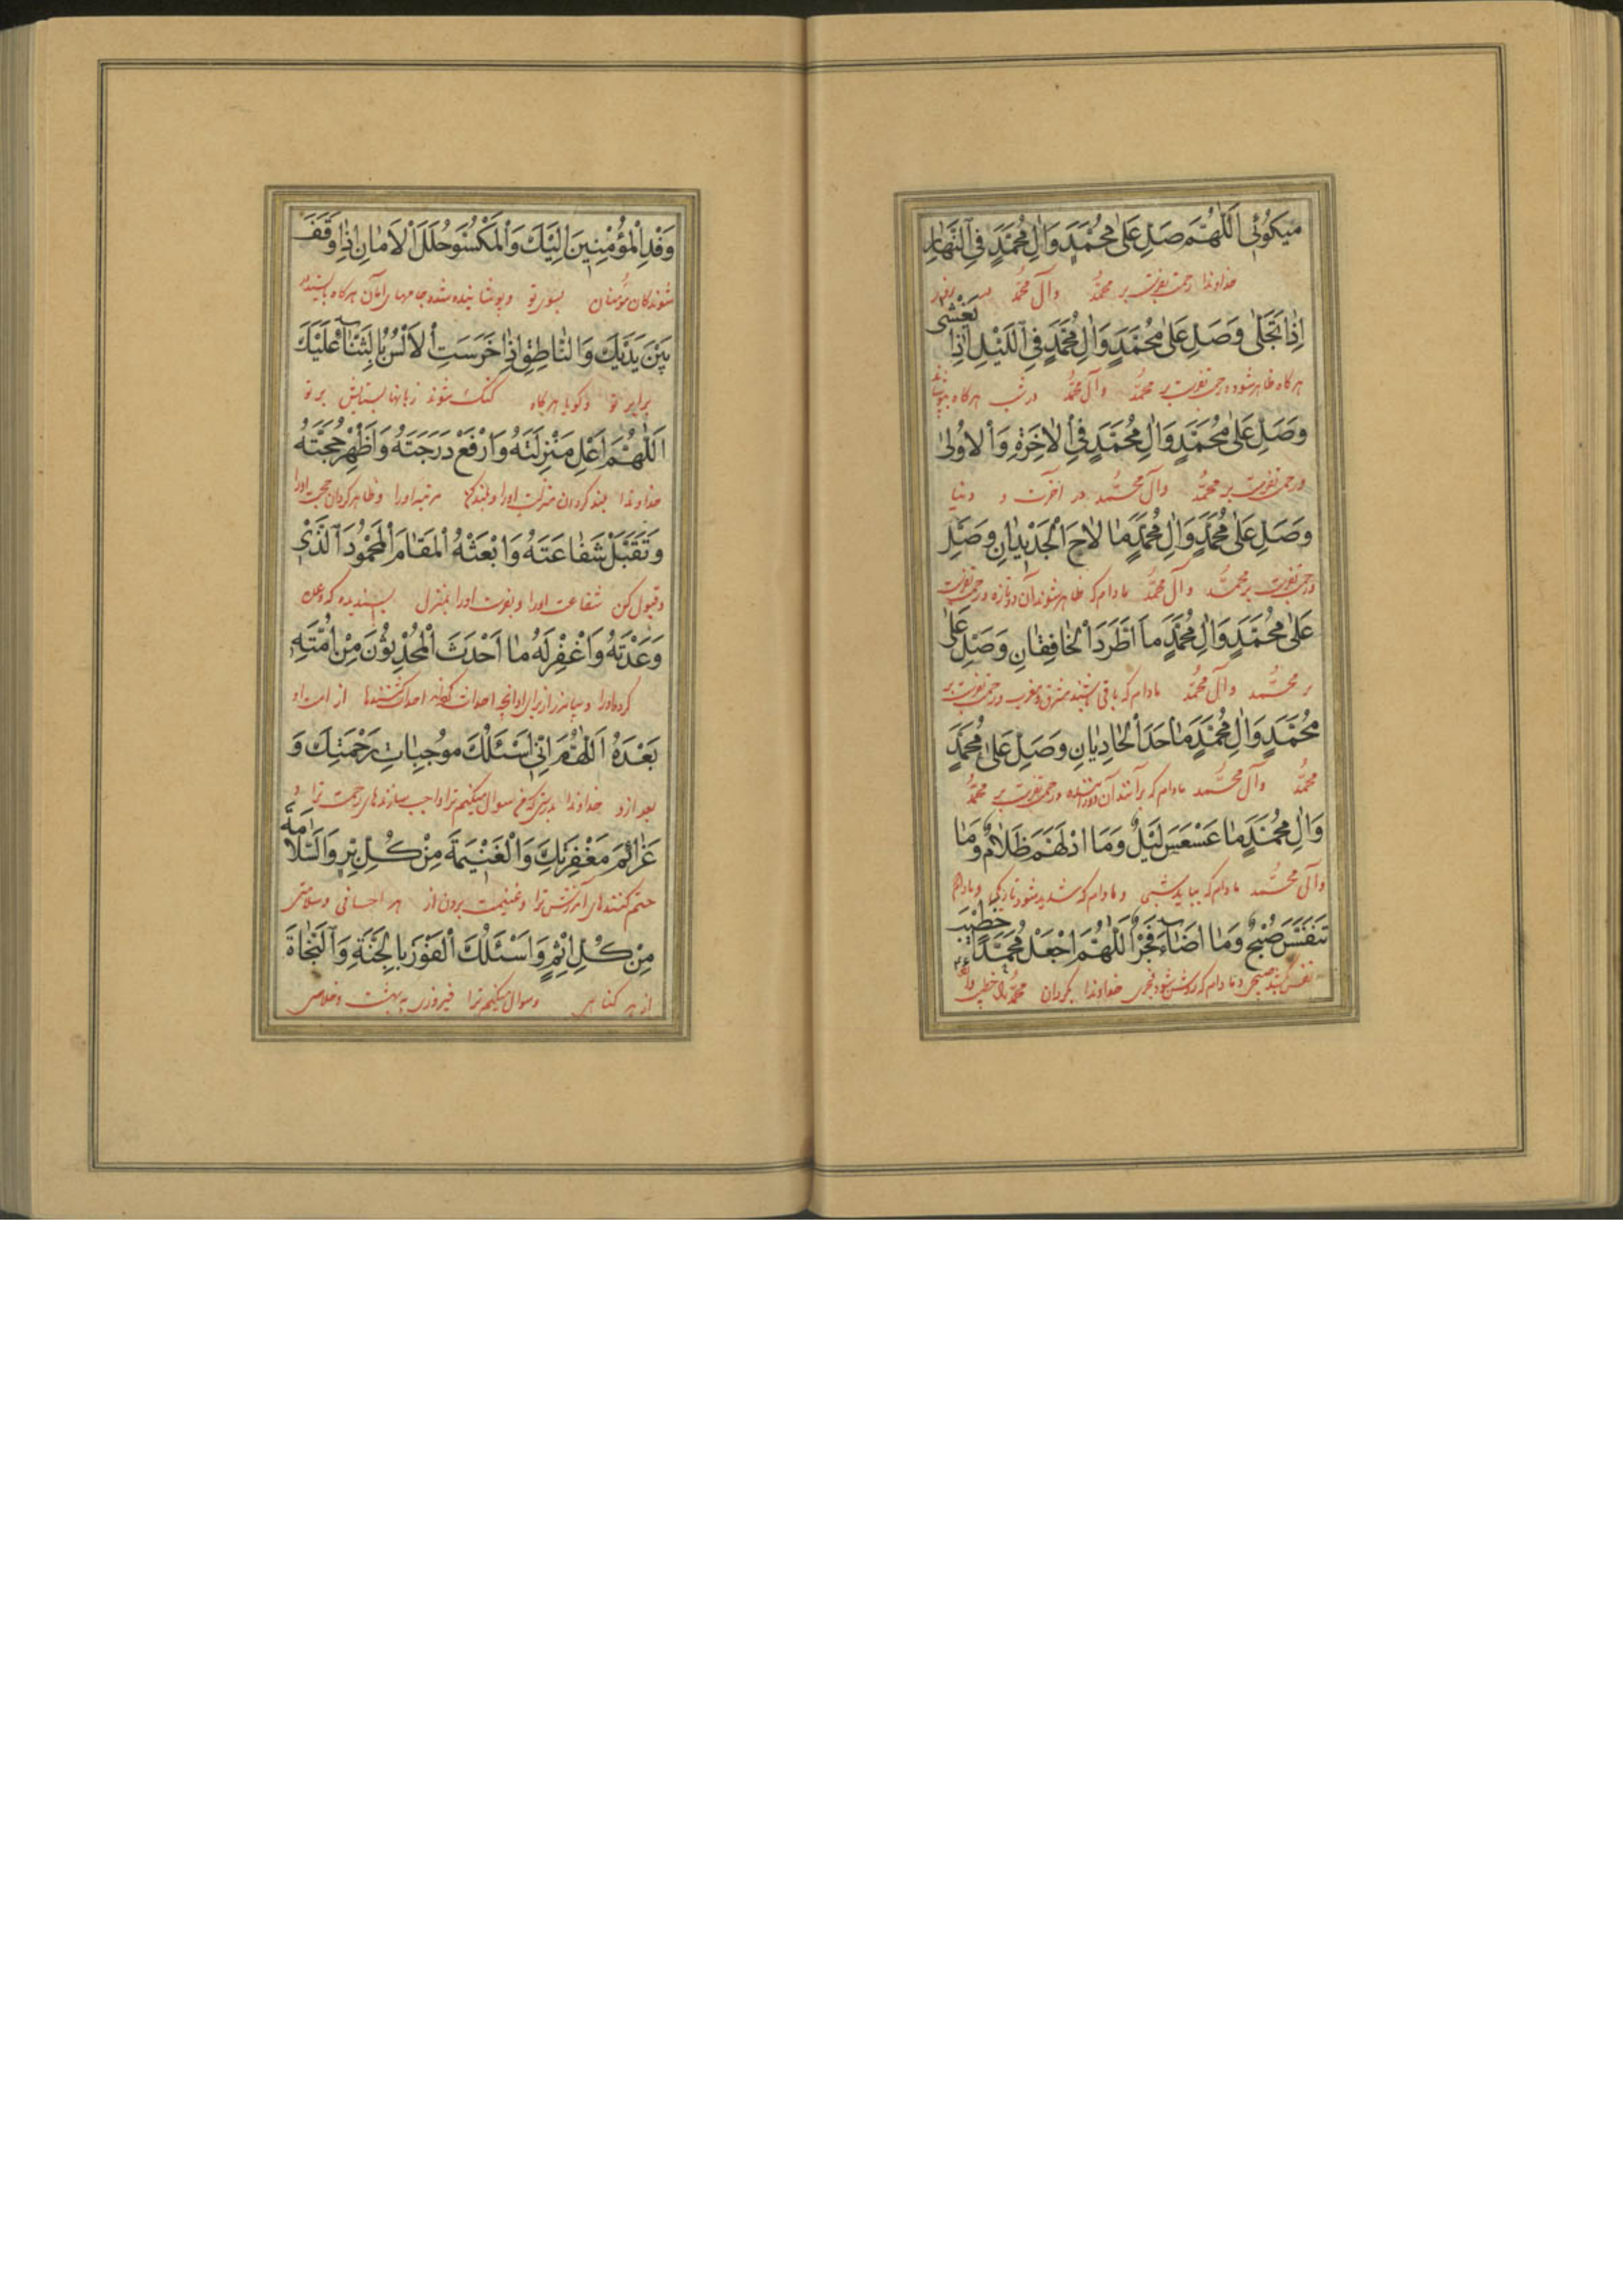 میکوئی اَللّٰهُمَّ صَلِّ عَلىٰ مُحَمَّدٍ وَاٰلِ مُحَمَّدٍ فِی النَّهٰارِ
خداوندا رحمت بفرست بر محمّد وآل محمّد در روز
اِذٰا تَجَلّٰى وَصَلِّ عَلىٰ مُحَمَّدٍ وَاٰلِ مُحَمَّدٍ فِی اللَّیْلِ اِذٰا یَغْشٰى
هرکاه ظاهر شود ورحمت بفرست بر محمّد وآل محمّد در شب هرکاه بپوشاند
وَصَلِّ عَلىٰ مُحَمَّدٍ وَاٰلِ مُحَمَّدٍ فِی الْاٰخِرَةِ وَالْاُولىٰ
ورحمت بفرست بر محمّد وآل محمّد در آخرت و دنیا
وَصَلِّ عَلىٰ مُحَمَّدٍ وَاٰلِ مُحَمَّدٍ مٰا لٰاحَ الْجَدیٖدٰانِ وَصَلِّ
ورحمت بفرست بر محمّد وآل محمّد مادام که ظاهر شوند آن دو تازه ورحمت بفرست
عَلىٰ مُحَمَّدٍ وَاٰلِ مُحَمَّدٍ مٰا اَطَّرَدَ الْخٰافِقٰانِ وَصَلِّ عَلىٰ
بر محمّد وآل محمّد مادام که باقی باشند مشرق ومغرب ورحمت بفرست بر
مُحَمَّدٍ وَاٰلِ مُحَمَّدٍ مٰا حَدَا الْحٰادِیٰانِ وَصَلِّ عَلىٰ مُحَمَّدٍ
محمّد وآل محمّد مادام که برآنند آن دو راننده ورحمت بفرست بر محمّد
وَاٰلِ مُحَمَّدٍ مٰا عَسْعَسَ لَیْلٌ وَمَا ادْلَهَمَّ ظَلٰامٌ وَمٰا
وآل محمّد مادام که بیاید شبی ومادام که شدید شود تاریکی ومادام
تَنَفَّسَ صُبْحٌ وَمٰا اَضٰاءَ فَجْرٌ اَللّٰهُمَّ اجْعَلْ مُحَمَّدًا خَطیٖبَ
نفس کشد صبحی ومادام که روشن شود فجری خداوندا بکردان محمّد را خطیب
وَفْدِ الْمُؤْمِنیٖنَ اِلَیْكَ وَالْمَکْسُوَّ حُلَلَ الْاَمٰانِ اِذٰا وَقَفَ
شوندکان مؤمنان بسوی تو وپوشانیده شده جامهای امان هرکاه بایستد
بَیْنَ یَدَیْكَ وَالنّٰاطِقَ اِذٰا خَرَسَتِ الْاَلْسُنُ بِالثَّنٰاءِ عَلَیْكَ
برابر تو وکویا هرکاه کنك شوند زبانها بستایش بر تو
اَللّٰهُمَّ اَعْلِ مَنْزِلَتَهُ وَارْفَعْ دَرَجَتَهُ وَاَظْهِرْ حُجَّتَهُ
خداوندا بلند کردان منزلت اورا وبلند کن مرتبه اورا وظاهر کردان حجت اورا
وَتَقَبَّلْ شَفٰاعَتَهُ وَابْعَثْهُ الْمَقٰامَ الْمَحْمُودَ الَّذیٖ
وقبول کن شفاعت اورا وبفرست اورا بمنزل پسندیده که وعده
وَعَدْتَهُ وَاغْفِرْ لَهُ مٰا اَحْدَثَ الْمُحْدِثُونَ مِنْ اُمَّتِهِ
کرده اورا وبیامرز از برای او آنچه احداث کردند احداث کنندها از امت او
بَعْدَهُ اَللّٰهُمَّ اِنّیٖ اَسْئَلُكَ مُوجِبٰاتِ رَحْمَتِكَ وَ
بعد ازو خداوندا بدرستی که من سوال میکنم ترا واجب سازندهای رحمت ترا و
عَزٰائِمَ مَغْفِرَتِكَ وَالْغَنیٖمَةَ مِنْ کُلِّ بِرٍّ وَالسَّلٰامَةَ
حتم کنندهای آمرزش ترا وغنیمت بردن از هر احسانی وسلامتی
مِنْ کُلِّ اِثْمٍ وَاَسْئَلُكَ الْفَوْزَ بِالْجَنَّةِ وَالنَّجٰاةَ
از هر کناهی وسوال میکنم ترا فیروزی به بهشت وخلاصی